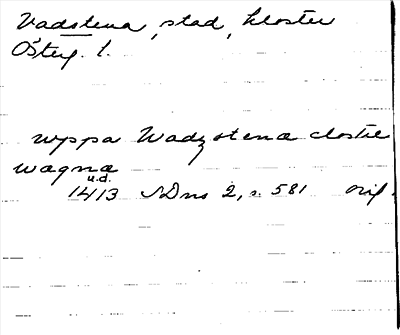 Vadstena, stad, kloster
Österg. l.
wppa Wadzstena closter
wagna
u.d.
1413 SDns 2, s. 581 orig.